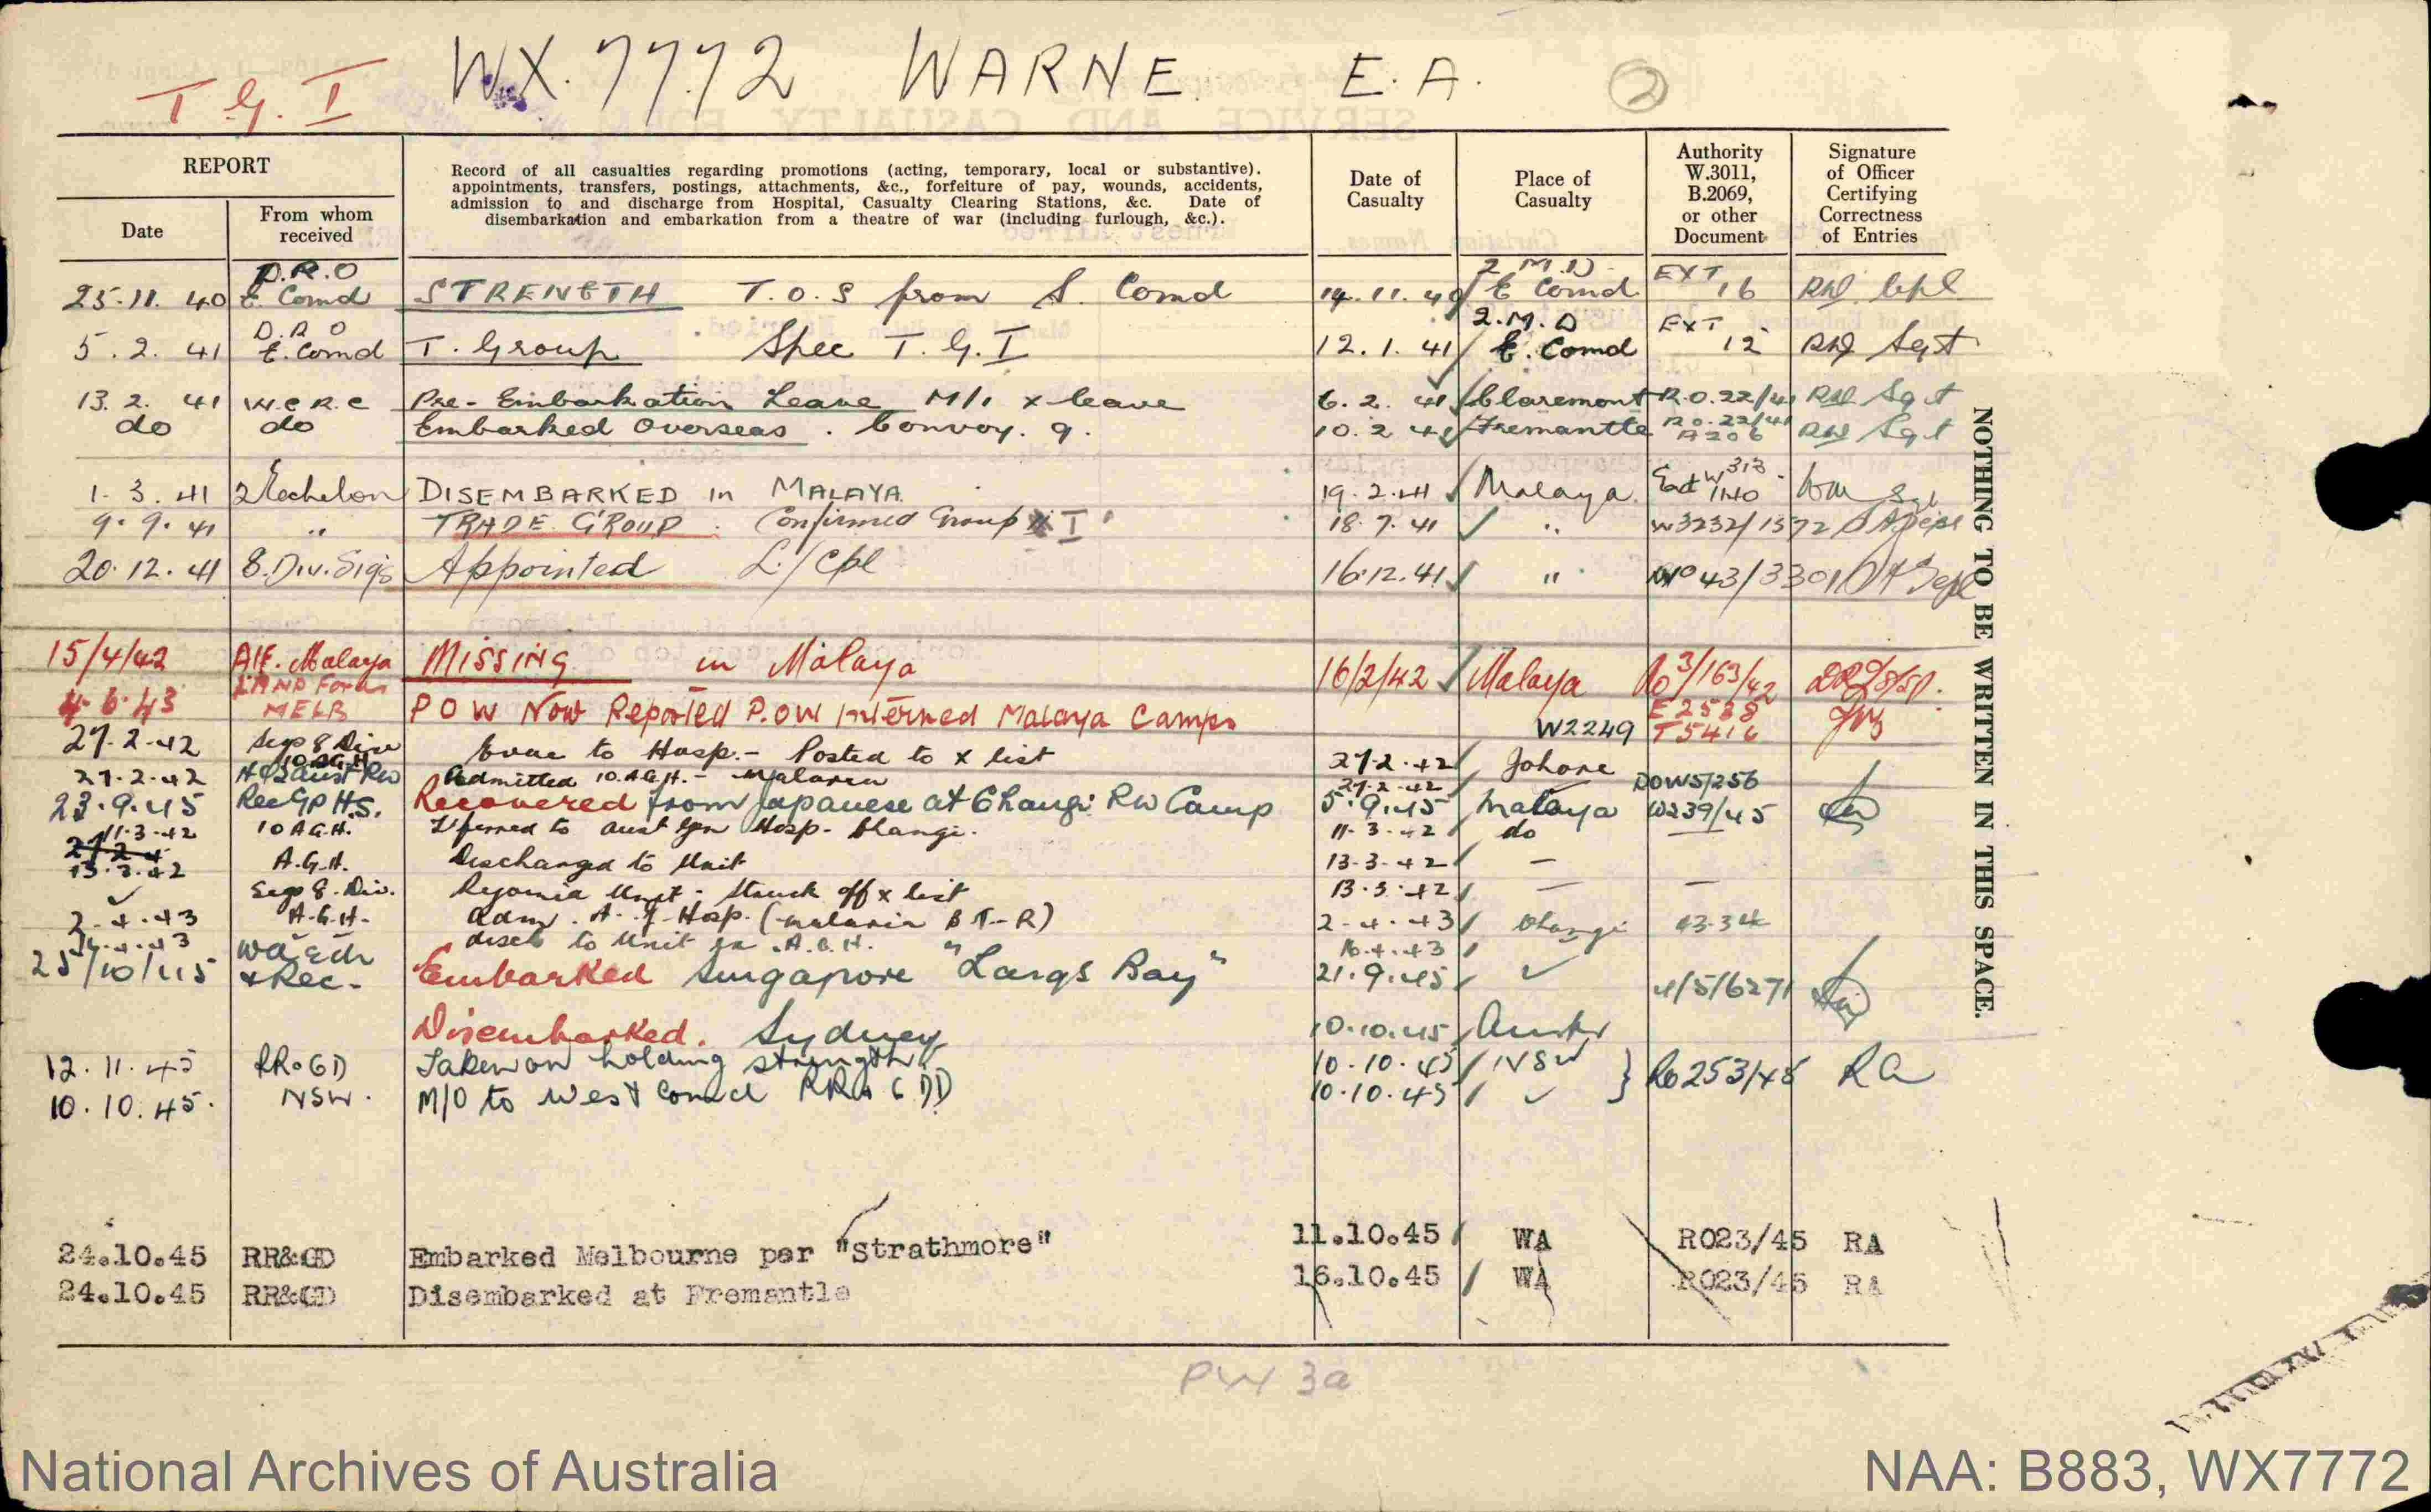 T.G.I WX.7772 WARNE. E.A. 2
REPORT
Date
From whom received
Record of all casualties regarding promotions (acting, temporary, local or substantive).
appointments, transfers, postings, attachments, &c., forfeiture of pay, wounds, accidents,
admission to and discharge from Hospital, Casualty Clearing Stations, &c. Date of
disembarkation and embarkation from a theatre of war (including furlough, &c.).
Date of Casualty
Place of Casualty
Authority W.3011, B.2069, or other Document
Signature of Officer Certifying Correctness of Entries
25.11.40 D.R.O E. Comd STRENGTH T.O.S from S. Comd 14.11.40 2 M.D E Comd EXT 16 Cpl
5.2.41 D.R.O E. Comd T. Group Spec T.G.I 12.1.41 2.M.D E. Comd EXT 12 Sgt
13.2.41 W.C.R.C Pre-Embarkation Leave M/1 x leave 6.2.41 Claremont R.O.22/41 Sgt
do do Embarked Overseas. Convoy. 9. 10.2.41 Fremantle RO.22/41 A206 Sgt
1.3.41 2 Echelon DISEMBARKED in MALAYA 19.2.41 Malaya W313 1140
9.9.41 " TRADE GROUP. Confirmed Group I 18.7.41 " W3232/1572
20.12.41 8.Div.Sigs Appointed L/Cpl 16.12.41 " 43/3301
15/4/42 AIF. Malaya MISSING in Malaya 16/2/42 Malaya Ro3/163/42
4.6.43 LAND Forces MELB POW Now Reported P.O.W Interned Malaya Camps W2249 E2588 T5416
27.2.42 Sigs 8 Div Evac to Hosp. - Posted to X list 27.2.42 Johore
27.2.42 10 AGH Admitted 10.A.G.H. - Malaria 27.2.42 POW5/256
23.9.45 HQ 2 Aust PW Rec GP H.S. Recovered from Japanese at Changi PW Camp 5.9.45 Malaya W239/45
11.3.42 10 A.G.H. T/ferred to Aust Gen Hosp. Changi. 11.3.42 do
13.3.42 A.G.H. Discharged to Unit 13.3.42 —
Sigs 8. Div. Rejoined Unit - Struck off x list 13.3.42 — —
2.4.43 A.G.H. Adm. A.G. Hosp. (malaria B T-R) 2.4.43 Changi 43.34
16.4.43 disch to Unit ex A.G.H. 16.4.43
25/10/45 WA Ech & Rec. Embarked Singapore "Largs Bay" 21.9.45 4/5/6271
Disembarked. Sydney 10.10.45 Austr
12.11.45 RR&GD Taken on holding strength 10.10.45 NSW } Ro253/45 RA
10.10.45. NSW. M/O to West Comd RR&GDD 10.10.45
24.10.45 RR&GD Embarked Melbourne per "Strathmore" 11.10.45 WA RO23/45 RA
24.10.45 RR&GD Disembarked at Fremantle 16.10.45 WA RO23/45 RA
NOTHING TO BE WRITTEN IN THIS SPACE.
PW 3a
National Archives of Australia
NAA: B883, WX7772